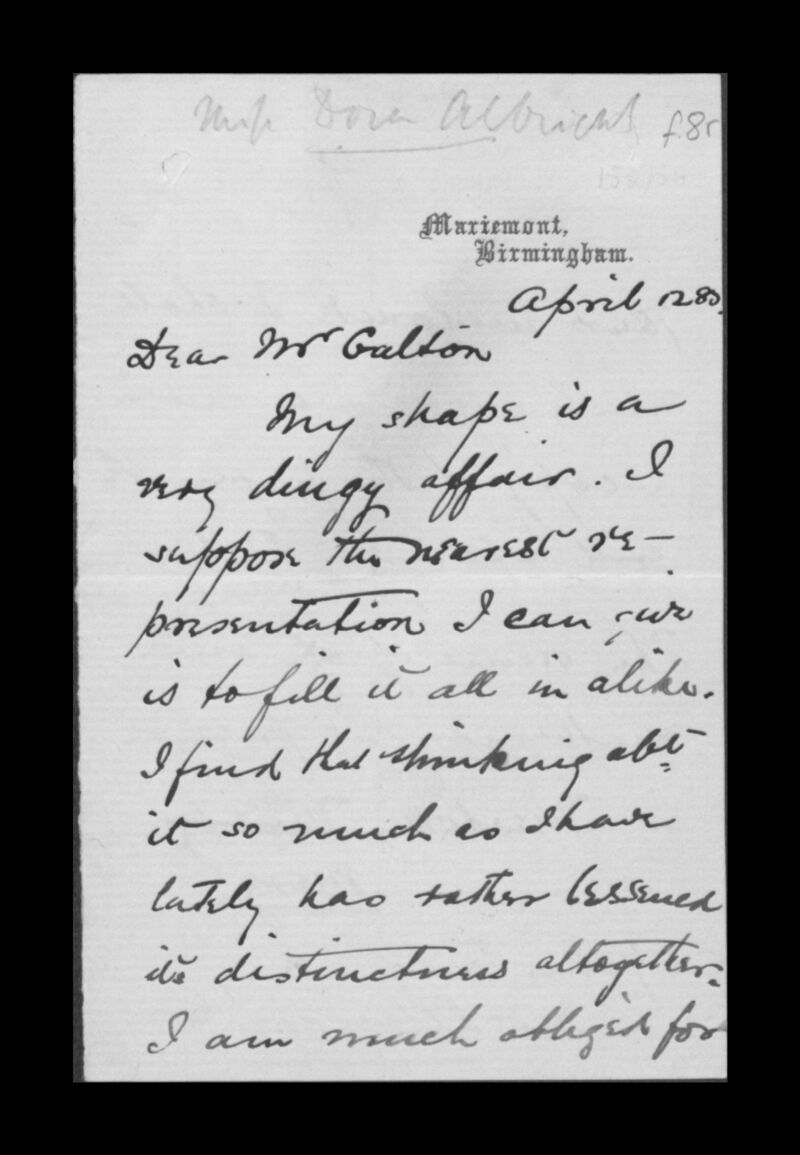 Miss Dora Albright f.8r
Mariemont,
Birmingham.
April 12 80.
Dear Mr Galton
My shape is a
very dingy affair. I
suppose the nearest re-
presentation I can give
is to fill it all in alike.
I find that thinking abt
it so much as I have
lately has rather lessened
its distinctness altogether.
I am much obliged for